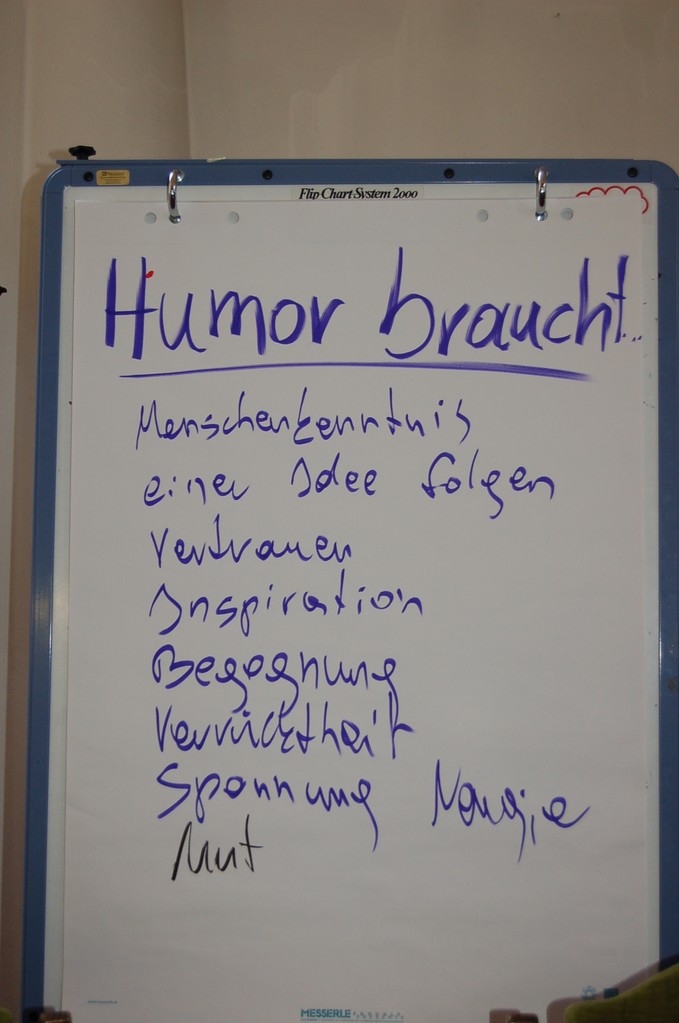 Flip Chart-System 2000
Humor braucht...
Menschenkenntnis
einer Idee folgen
Vertrauen
Inspiration
Begegnung
Verrücktheit
Spannung
Mut
MESSERLE